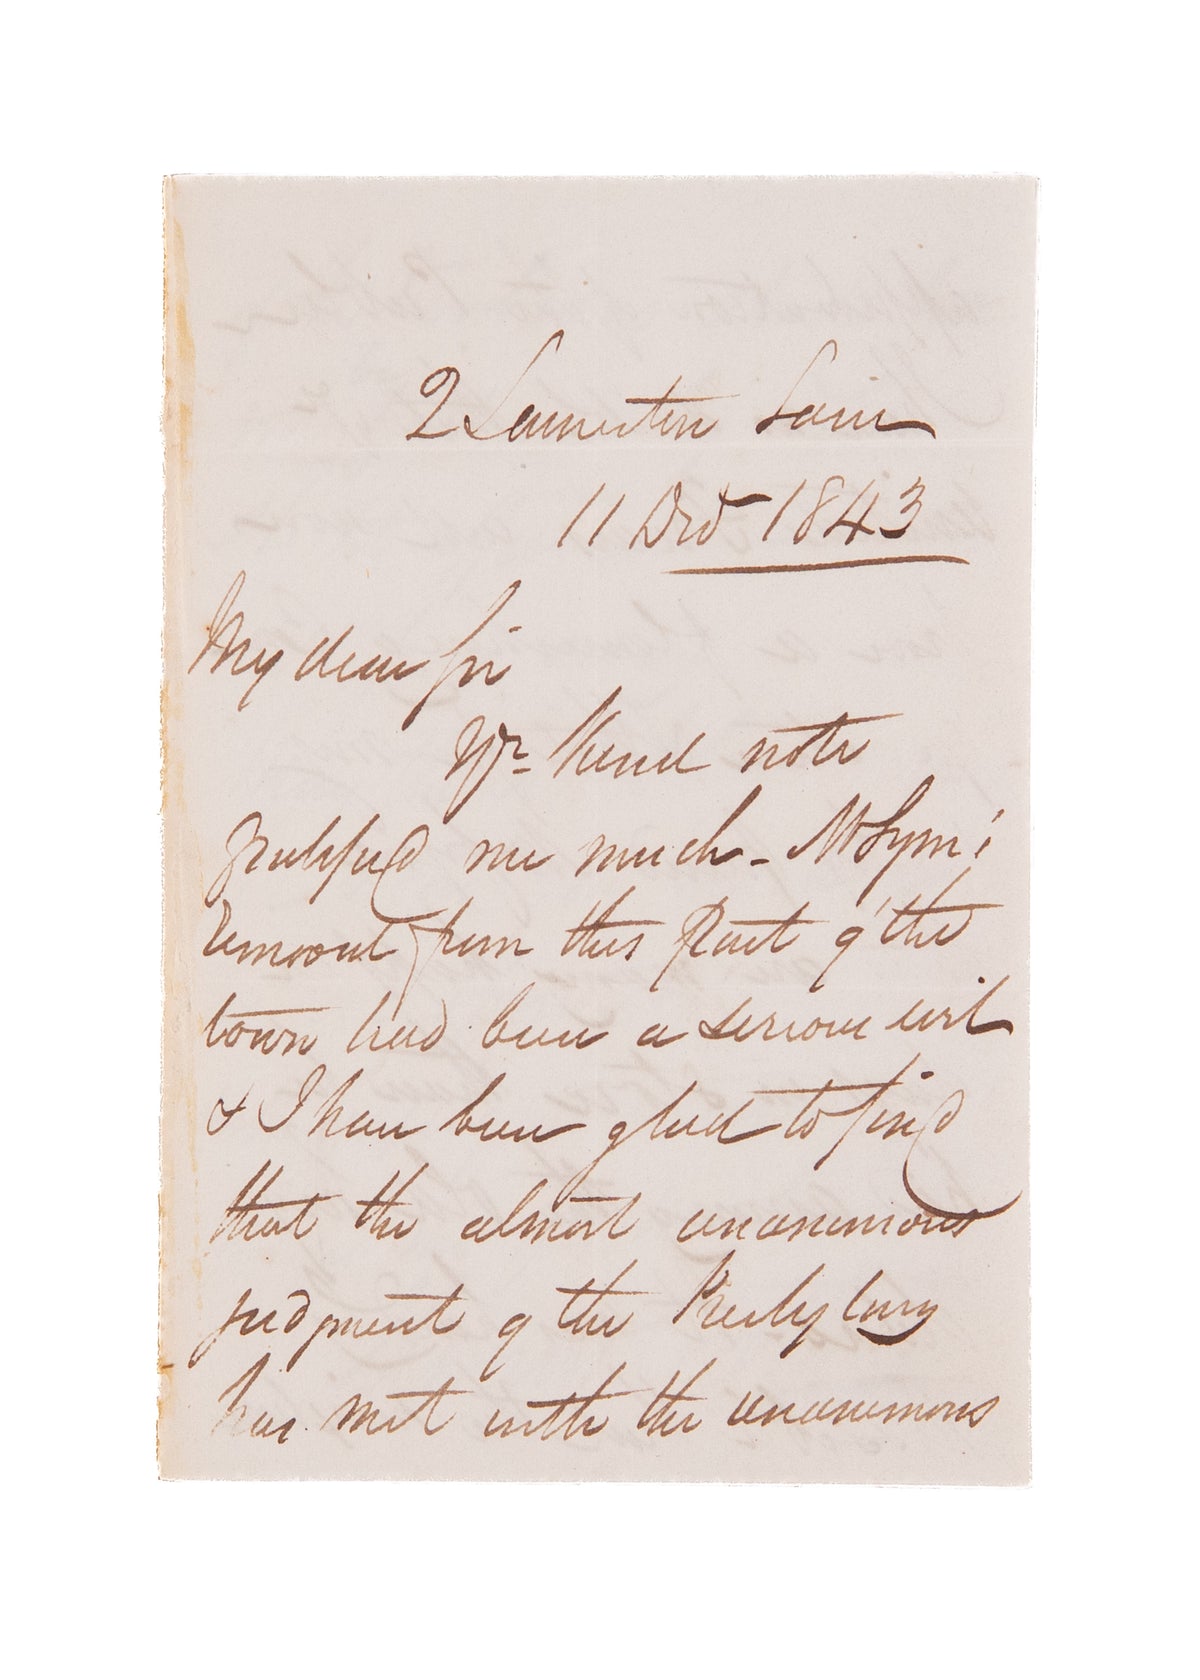 2 Lauriston Lane
11 Decr 1843
My dear Sir
Yr. kind note
gratified me much - Mr Sym's
removal from this part of the
town had been a serious evil
& I have been glad to find
that the almost unanimous
judgment of the Presbytery
has met with the unanimous